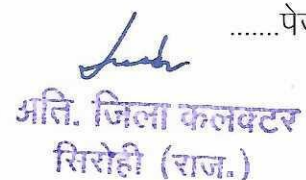 .......पेज
अति. जिला कलक्टर
सिरोही (राज.)